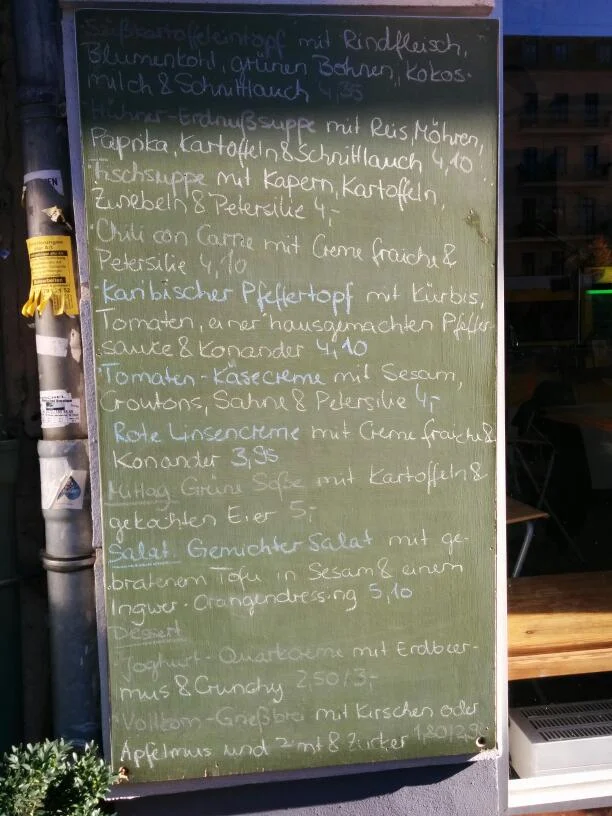 Süßkartoffeleintopf mit Rindfleisch,
Blumenkohl, grünen Bohnen, Kokos-
milch & Schnittlauch 4,35
·Hühner-Erdnußsuppe mit Reis, Möhren,
Paprika, Kartoffeln & Schnittlauch 4,10
·Fischsuppe mit Kapern, Kartoffeln,
Zwiebeln & Petersilie 4,-
·Chili con Carne mit Creme fraiche &
Petersilie 4,10
·Karibischer Pfeffertopf mit Kürbis,
Tomaten, einer hausgemachten Pfeffer-
sauce & Koriander 4,10
·Tomaten-Käsecreme mit Sesam,
Croutons, Sahne & Petersilie 4,-
Rote Linsencreme mit Creme fraiche &
Koriander 3,95
Mittag Grüne Soße mit Kartoffeln &
gekochten Eier 5,-
Salat. Gemischter Salat mit ge-
bratenem Tofu in Sesam & einem
Ingwer-Orangendressing 5,10
Dessert
·Joghurt-Quarkcreme mit Erdbeer-
mus & Crunchy 2,50/3,-
·Vollkorn-Grießbrei mit Kirschen oder
Apfelmus und Zimt & Zucker 1,80/2,90